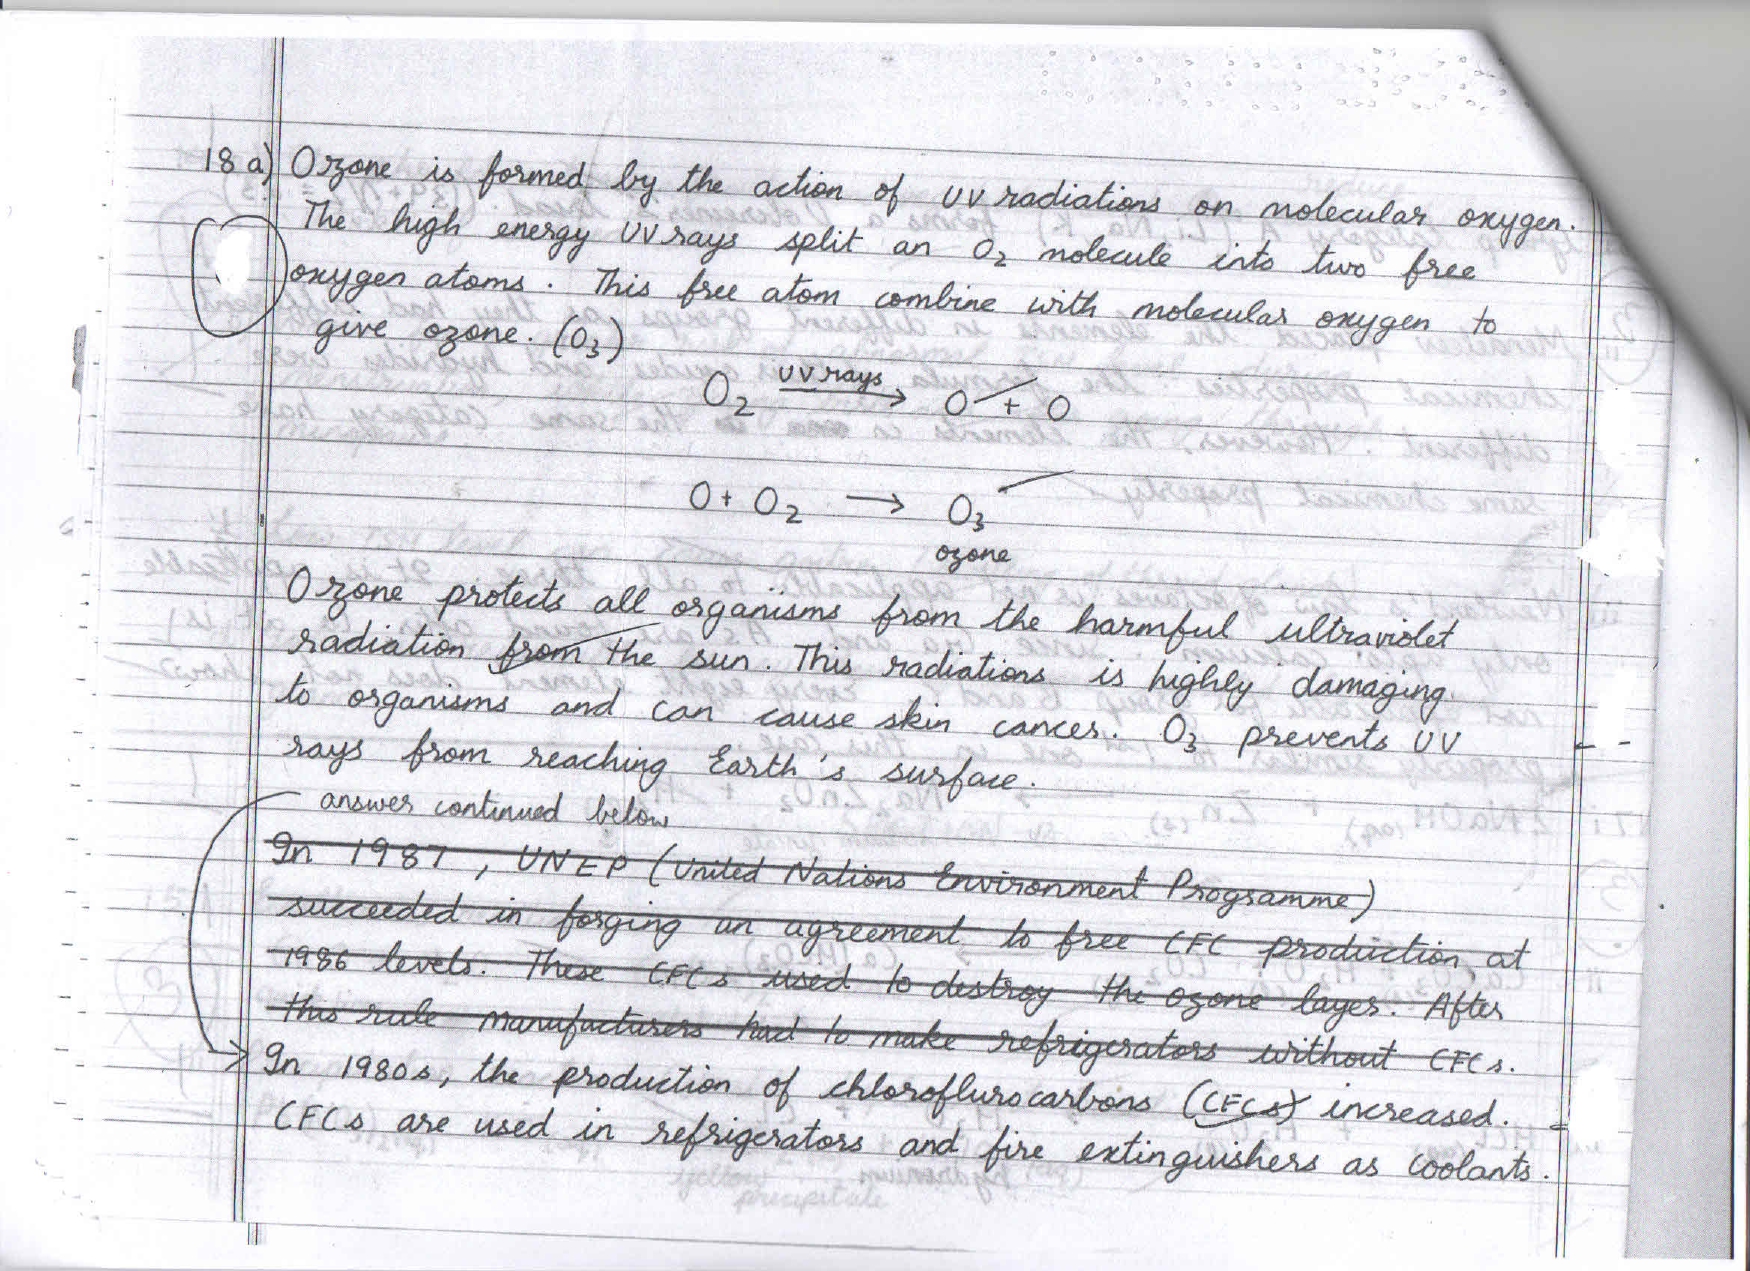 18 a) Ozone is formed by the action of UV radiations on molecular oxygen.
The high energy UV rays split an O₂ molecule into two free
oxygen atoms. This free atom combine with molecular oxygen to
give ozone. (O₃)
O₂ UV rays → O + O
O + O₂ → O₃
ozone
Ozone protects all organisms from the harmful ultraviolet
radiation from the sun. This radiations is highly damaging
to organisms and can cause skin cancer. O₃ prevents UV
rays from reaching Earth's surface.
answer continued below
In 1987, UNEP (United Nations Environment Programme)
succeeded in forging an agreement to free CFC production at
1986 levels. These CFCs used to destroy the ozone layer. After
this rule manufacturers had to make refrigerators without CFCs.
In 1980s, the production of chloroflurocarbons (CFCs) increased.
CFCs are used in refrigerators and fire extinguishers as coolants.